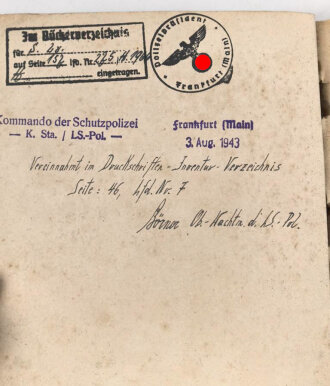 Im Bücherverzeichnis
für S. Lg.
auf Seite 154 lfd. Nr.
eingetragen.
Polizeipräsident
Frankfurt (Main)
Kommando der Schutzpolizei
— K. Sta. / LS.-Pol. —
Frankfurt (Main)
3. Aug. 1943
Vereinnahmt im Druckschriften-Inventar-Verzeichnis
Seite: 46, Lfd. Nr. 7
Ob.-Wachtm. d. LS.-Pol.